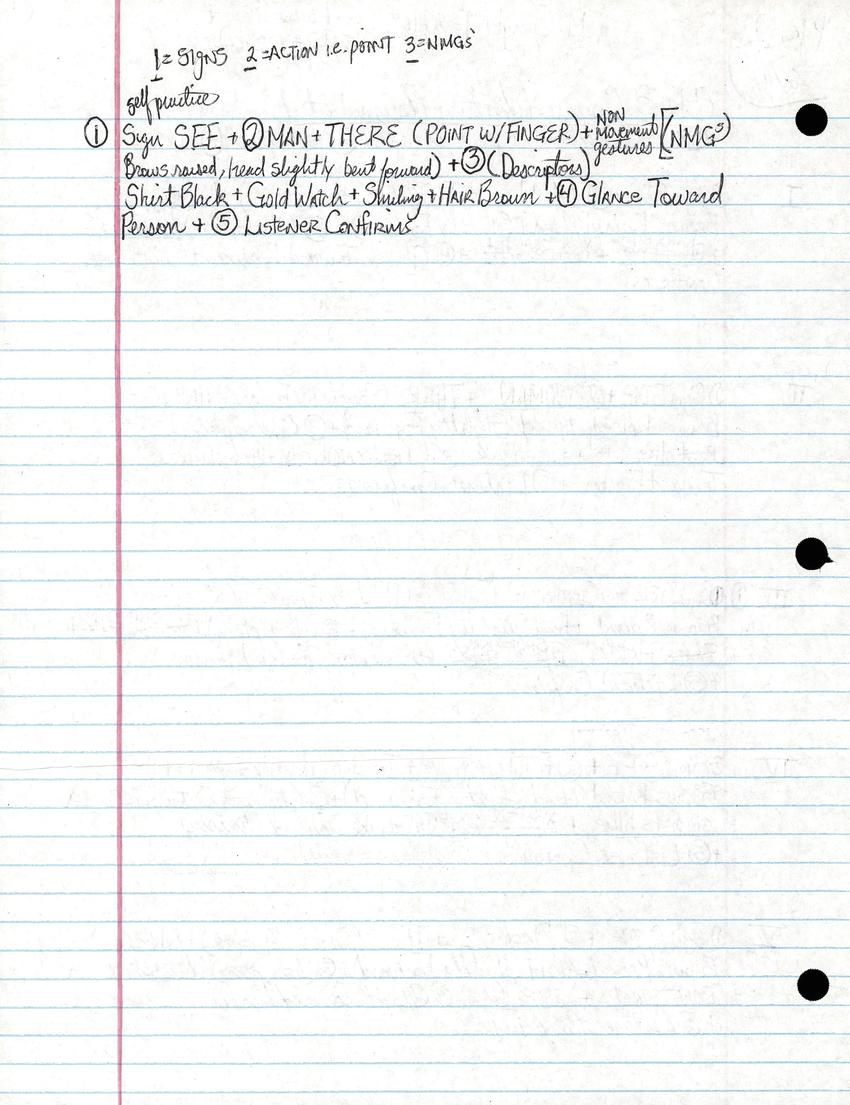 1= Signs 2=ACTION i.e. POINT 3=NMGs
self practice
① Sign SEE + ② MAN + THERE (POINT W/FINGER) + NON Movement gestures [(NMG's)
Brows raised, head slightly bent forward) + ③ (Descriptors)
Shirt Black + Gold Watch + Smiling + HAIR Brown + ④ Glance Toward
Person + ⑤ Listener Confirms